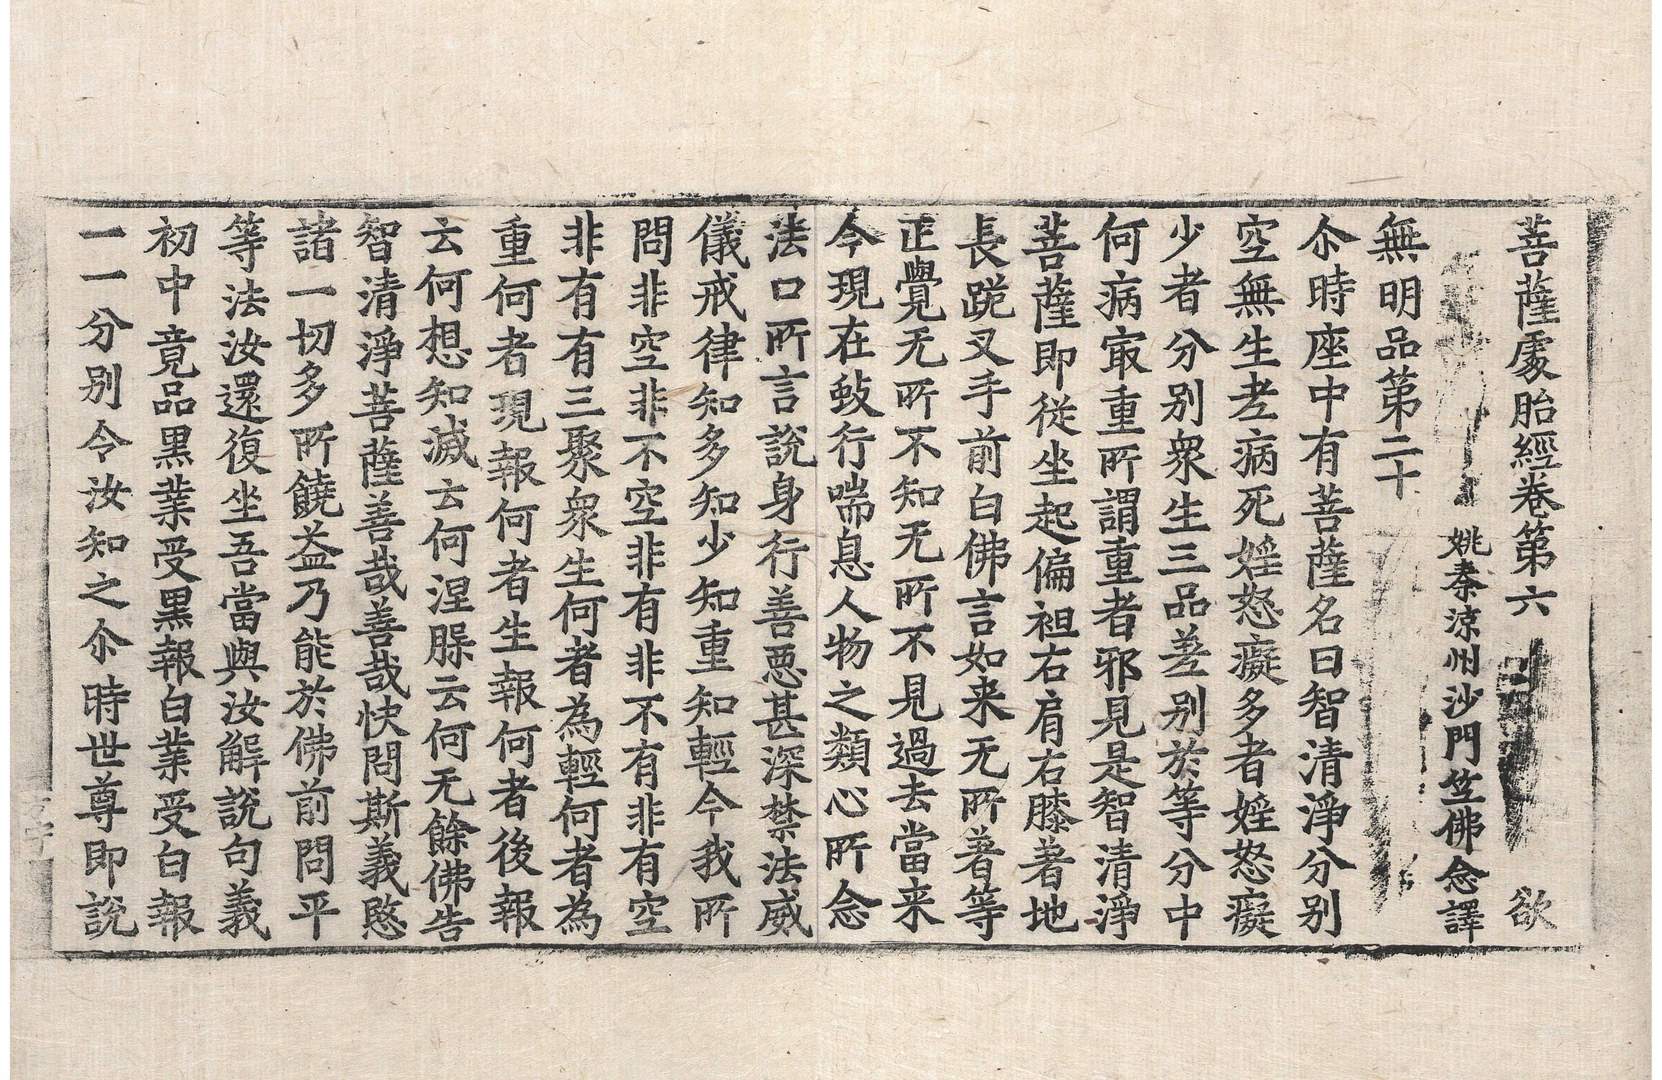 菩薩處胎經卷第六 欲
姚秦涼州沙門竺佛念譯
無明品第二十
尒時座中有菩薩名曰智清淨分別
空無生老病死婬怒癡多者婬怒癡
少者分別衆生三品差別於等分中
何病㝡重所謂重者邪見是智清淨
菩薩即從坐起偏袒右肩右膝著地
長跪叉手前白佛言如来无所著等
正覺无所不知无所不見過去當来
今現在蚑行喘息人物之類心所念
法口所言說身行善惡甚深禁法威
儀戒律知多知少知重知輕今我所
問非空非不空非有非不有非有空
非有有三聚衆生何者為輕何者為
重何者現報何者生報何者後報
云何想知滅云何涅槃云何无餘佛告
智清淨菩薩善哉善哉快問斯義愍
諸一切多所饒益乃能於佛前問平
等法汝還復坐吾當與汝解說句義
初中竟品黑業受黑報白業受白報
一一分別令汝知之尒時世尊即說